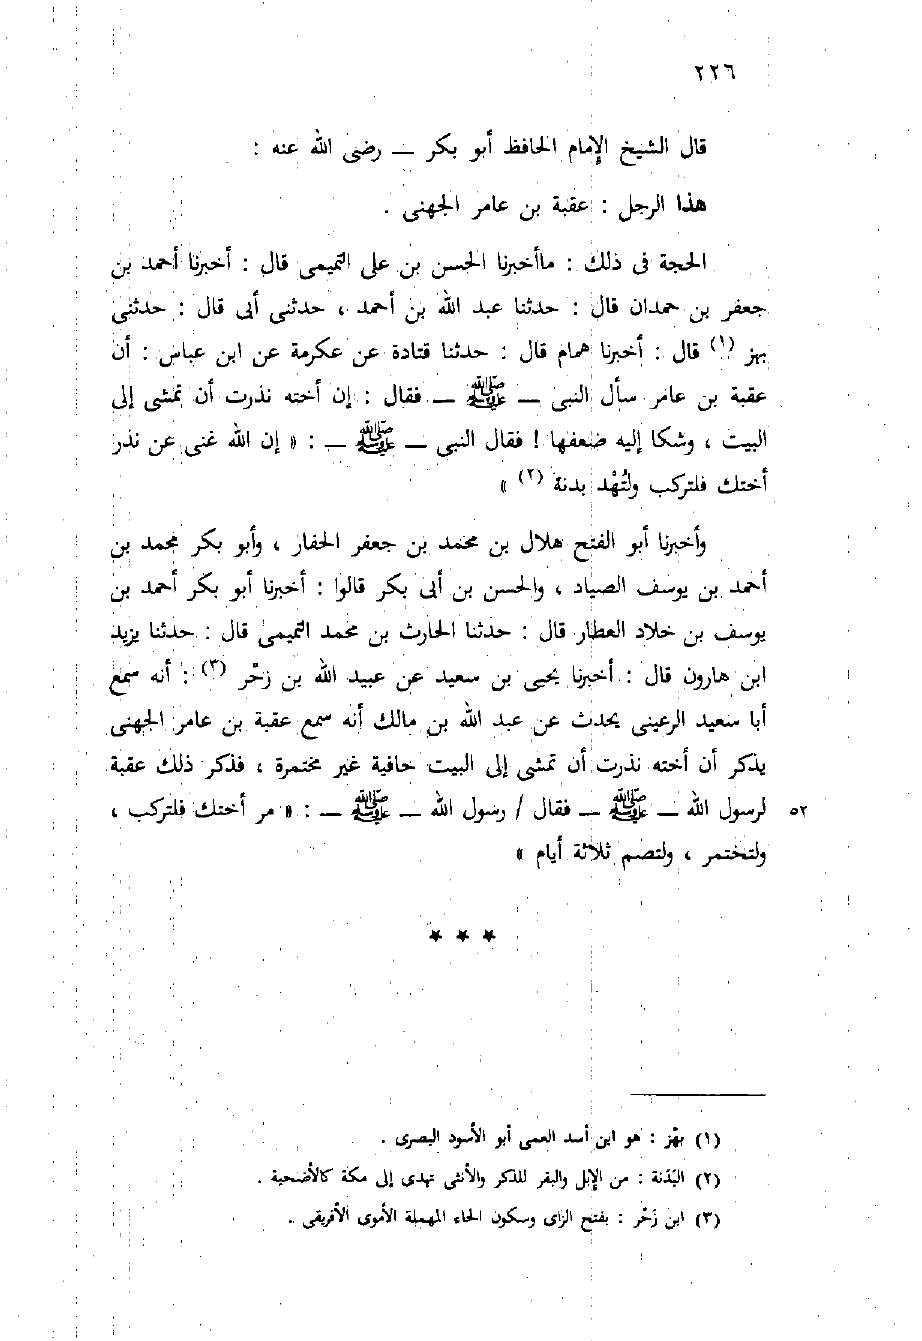 ٢٢٦
قال الشيخ الإمام الحافظ أبو بكر — رضى الله عنه :
هذا الرجل : عقبة بن عامر الجهنى .
الحجة فى ذلك : ماأخبرنا الحسن بن على التميمى قال : أخبرنا أحمد بن
جعفر بن حمدان قال : حدثنا عبد الله بن أحمد ، حدثنى أبى قال : حدثنى
بهز (١) قال : أخبرنا همام قال : حدثنا قتادة عن عكرمة عن ابن عباس : أن
عقبة بن عامر سأل النبى — ﷺ — فقال : إن أخته نذرت أن تمشى إلى
البيت ، وشكا إليه ضعفها ! فقال النبى — ﷺ — : « إن الله غنى عن نذر
أختك فلتركب ولتُهْد بدنة (٢) »
وأخبرنا أبو الفتح هلال بن محمد بن جعفر الحفار ، وأبو بكر محمد بن
أحمد بن يوسف الصياد ، والحسن بن أبى بكر قالوا : أخبرنا أبو بكر أحمد بن
يوسف بن خلاد العطار قال : حدثنا الحارث بن محمد التميمى قال : حدثنا يزيد
ابن هارون قال : أخبرنا يحيى بن سعيد عن عبيد الله بن زحْر (٣) : أنه سمع
أبا سعيد الرعينى يحدث عن عبد الله بن مالك أنه سمع عقبة بن عامر الجهنى
يذكر أن أخته نذرت أن تمشى إلى البيت حافية غير مختمرة ، فذكر ذلك عقبة
٥٢ لرسول الله — ﷺ — فقال / رسول الله — ﷺ — : « مر أختك فلتركب ،
ولتختمر ، ولتصم ثلاثة أيام »
* * *
(١) بهْز : هو ابن أسد العمى أبو الأسود البصرى .
(٢) البَدَنة : من الإبل والبقر للذكر والأنثى تهدى إلى مكة كالأضحية .
(٣) ابن زَحْر : بفتح الزاى وسكون الحاء المهملة الأموى الأفريقى .